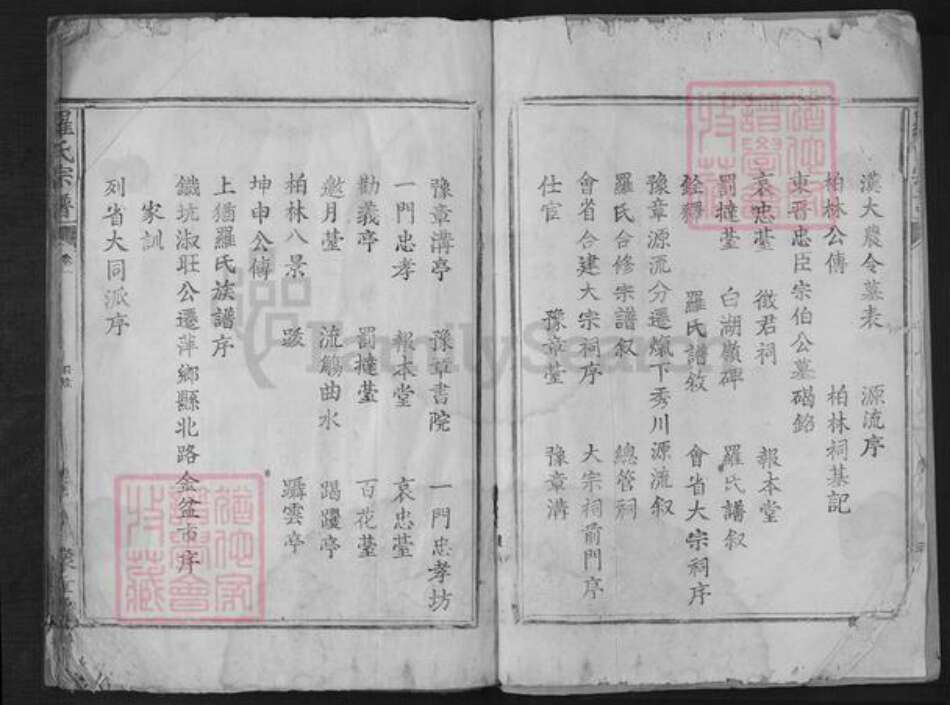 漢大農令墓表　源流序
柏林公傳　柏林祠基記
東晋忠臣宗伯公墓碣銘
哀忠䑓　徵君祠　報本堂
罰撻䑓　白湖嶺碑　羅氏譜叙
銓釋　羅氏譜敘　會省大宗祠序
豫章源流分遷爌下秀川源流叙
羅氏合修宗譜叙　總管祠
會省合建大宗祠序　大宗祠前門序
仕宦　豫章䑓　豫章溝
豫章溝亭　豫章書院　一門忠孝坊
一門忠孝　報本堂　哀忠䑓
勸義亭　罰撻䑓　百花䑓
邀月䑓　流觴曲水　躅躩亭
柏林八景　跋　躡雲亭
坤申公傳
上猶羅氏族譜序
鐵坑淑旺公遷萍鄉縣北路金盆市序
家訓
列省大同派序
羅氏宗譜
卷一